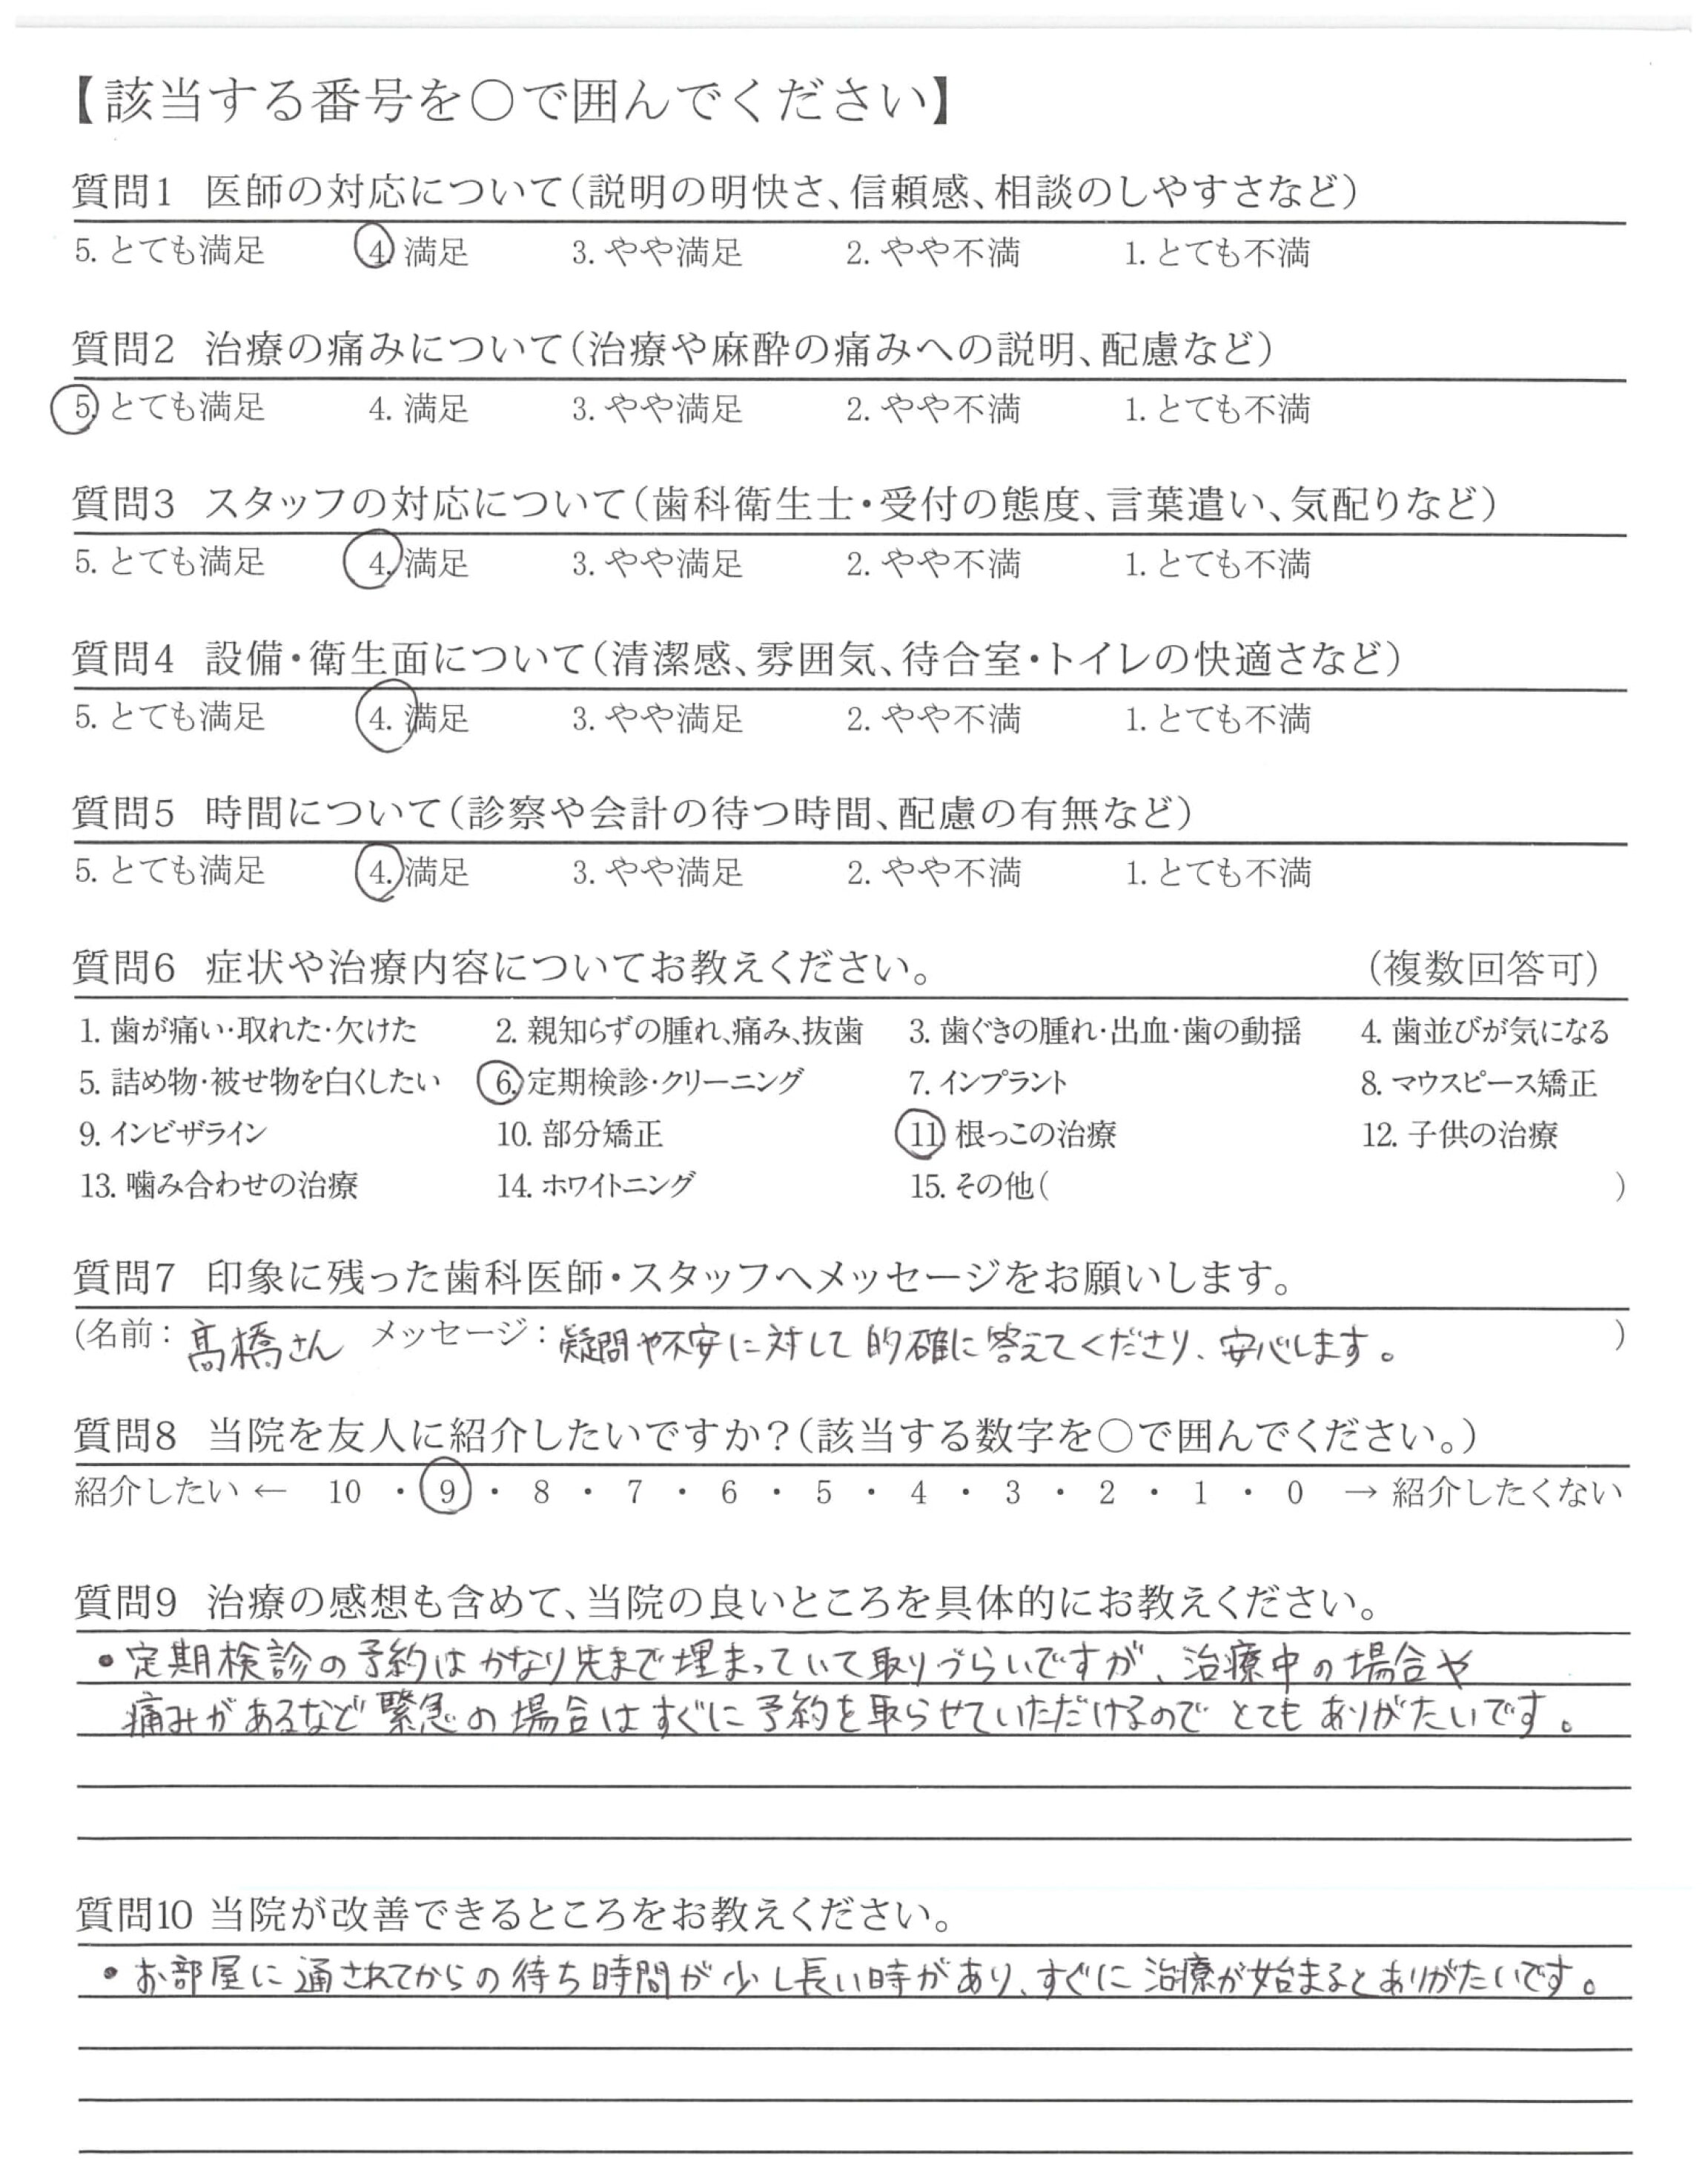 【該当する番号を○で囲んでください】
質問1 医師の対応について(説明の明快さ、信頼感、相談のしやすさなど)
5. とても満足 4. 満足 3. やや満足 2. やや不満 1. とても不満
質問2 治療の痛みについて(治療や麻酔の痛みへの説明、配慮など)
5. とても満足 4. 満足 3. やや満足 2. やや不満 1. とても不満
質問3 スタッフの対応について(歯科衛生士・受付の態度、言葉遣い、気配りなど)
5. とても満足 4. 満足 3. やや満足 2. やや不満 1. とても不満
質問4 設備・衛生面について(清潔感、雰囲気、待合室・トイレの快適さなど)
5. とても満足 4. 満足 3. やや満足 2. やや不満 1. とても不満
質問5 時間について(診察や会計の待つ時間、配慮の有無など)
5. とても満足 4. 満足 3. やや満足 2. やや不満 1. とても不満
質問6 症状や治療内容についてお教えください。 (複数回答可)
1. 歯が痛い・取れた・欠けた 2. 親知らずの腫れ、痛み、抜歯 3. 歯ぐきの腫れ・出血・歯の動揺 4. 歯並びが気になる
5. 詰め物・被せ物を白くしたい 6. 定期検診・クリーニング 7. インプラント 8. マウスピース矯正
9. インビザライン 10. 部分矯正 11. 根っこの治療 12. 子供の治療
13. 噛み合わせの治療 14. ホワイトニング 15. その他( )
質問7 印象に残った歯科医師・スタッフへメッセージをお願いします。
(名前: 髙橋さん メッセージ: 疑問や不安に対して的確に答えてくださり、安心します。 )
質問8 当院を友人に紹介したいですか?(該当する数字を○で囲んでください。)
紹介したい ← 10 ・ 9 ・ 8 ・ 7 ・ 6 ・ 5 ・ 4 ・ 3 ・ 2 ・ 1 ・ 0 → 紹介したくない
質問9 治療の感想も含めて、当院の良いところを具体的にお教えください。
・定期検診の予約はかなり先まで埋まっていて取りづらいですが、治療中の場合や
痛みがあるなど緊急の場合はすぐに予約を取らせていただけるのでとてもありがたいです。
質問10 当院が改善できるところをお教えください。
・お部屋に通されてからの待ち時間が少し長い時があり、すぐに治療が始まるとありがたいです。